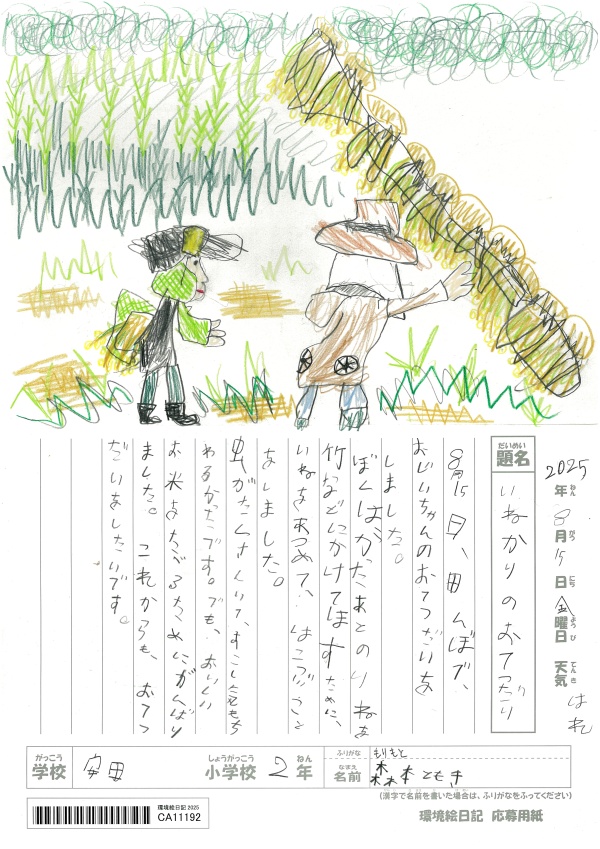 2025年ねん 8月がつ 15日にち 金曜日ようび 天気てんき はれ
題名だいめい いねかりのおてつだい
8月15日、田んぼで、
おじいちゃんのおてつだいを
しました。
ぼくは、かったあとのいねを
竹などにかけてほすために、
いねをあつめて、はこぶこと
をしました。
虫がたくさんいて、すこし気もち
わるかったです。でも、おいしい
お米をたべるためにがんばり
ました。これからも、おてつ
だいをしたいです。
がっこう 学校 安田 しょうがっこう 小学校 2 ねん 年
ふりがな もりもと
なまえ 名前 森本 ともき
(漢字で名前を書いた場合は、ふりがなをふってください)
環境絵日記2025
CA11192
環境絵日記 応募用紙